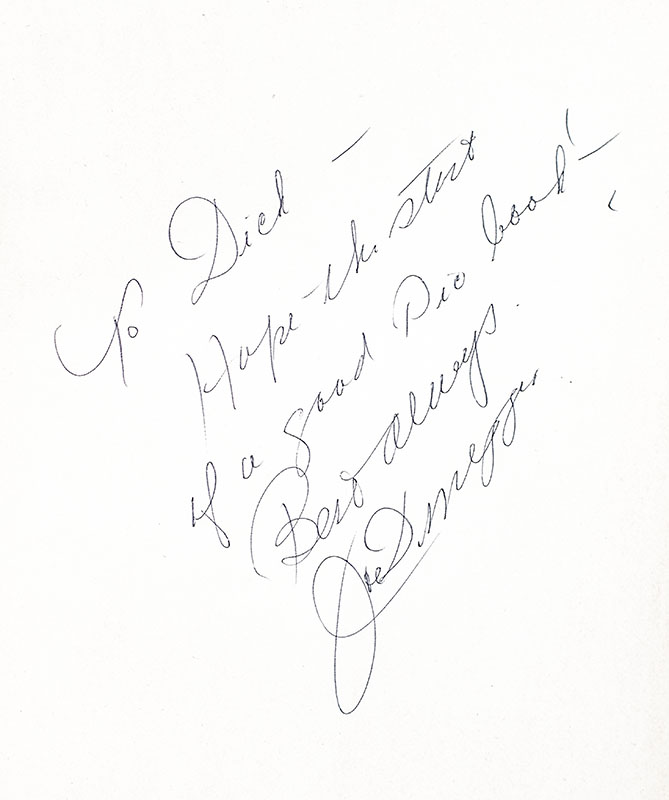 To Dick —
Hope the start
of a good Pic book! —
Best Always.
Joe DiMaggio